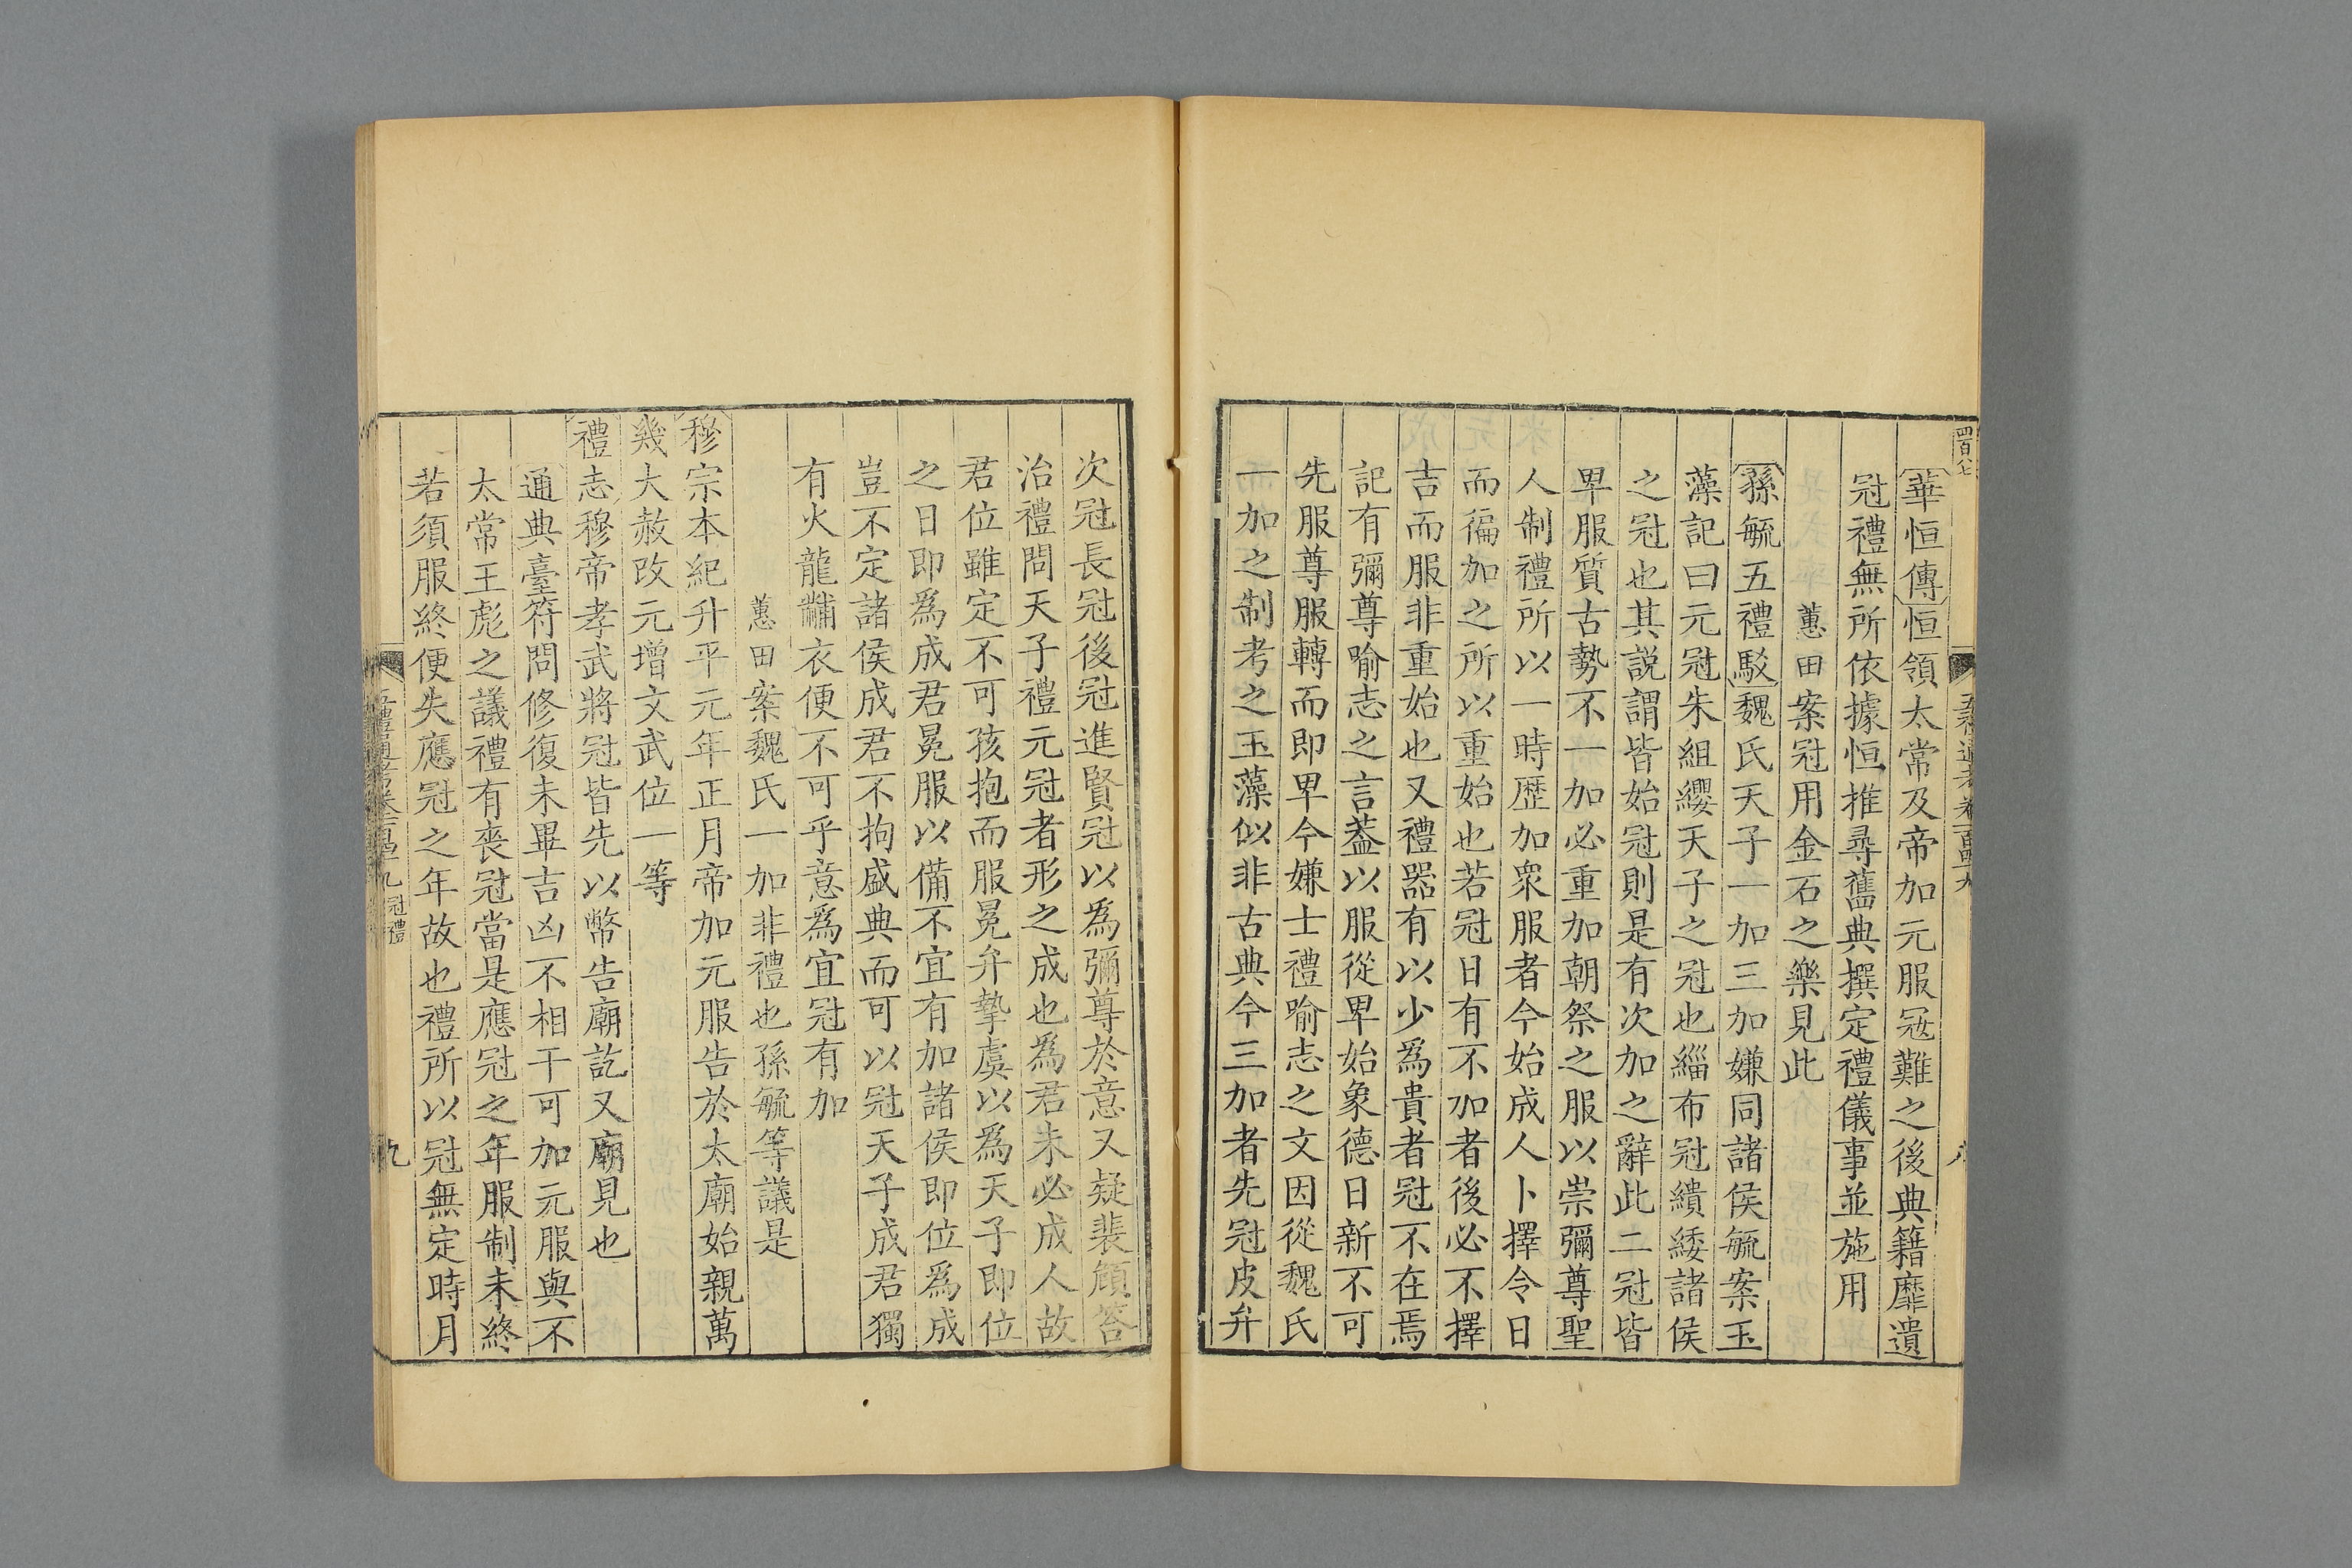 四百八七
華恒傳恒領太常及帝加元服冦難之後典籍靡遺
冠禮無所依據恒推尋舊典撰定禮儀事並施用
蕙田案冠用金石之樂見此
孫毓五禮駁魏氏天子一加三加嫌同諸侯毓案玉
藻記曰元冠朱組纓天子之冠也緇布冠繢緌諸侯
之冠也其説謂皆始冠則是有次加之辭此二冠皆
卑服質古勢不一加必重加朝祭之服以崇彌尊聖
人制禮所以一時歷加衆服者今始成人卜擇令日
而徧加之所以重始也若冠日有不加者後必不擇
吉而服非重始也又禮器有以少爲貴者冠不在焉
記有彌尊喻志之言葢以服從卑始象德日新不可
先服尊服轉而即卑今嫌士禮喻志之文因從魏氏
一加之制考之玉藻似非古典今三加者先冠皮弁
次冠長冠後冠進賢冠以爲彌尊於意又疑裴頠答
治禮問天子禮元冠者形之成也爲君未必成人故
君位雖定不可孩抱而服冕弁摯虞以爲天子即位
之日即爲成君冕服以備不宜有加諸侯即位爲成
豈不定諸侯成君不拘盛典而可以冠天子成君獨
有火龍黼衣便不可乎意爲宜冠有加
蕙田案魏氏一加非禮也孫毓等議是
穆宗本紀升平元年正月帝加元服告於太廟始親萬
幾大赦改元增文武位一等
禮志穆帝孝武將冠皆先以幣告廟訖又廟見也
通典臺符問修復未畢吉凶不相干可加元服與不
太常王彪之議禮有喪冠當是應冠之年服制未終
若須服終便失應冠之年故也禮所以冠無定時月
冠禮
九